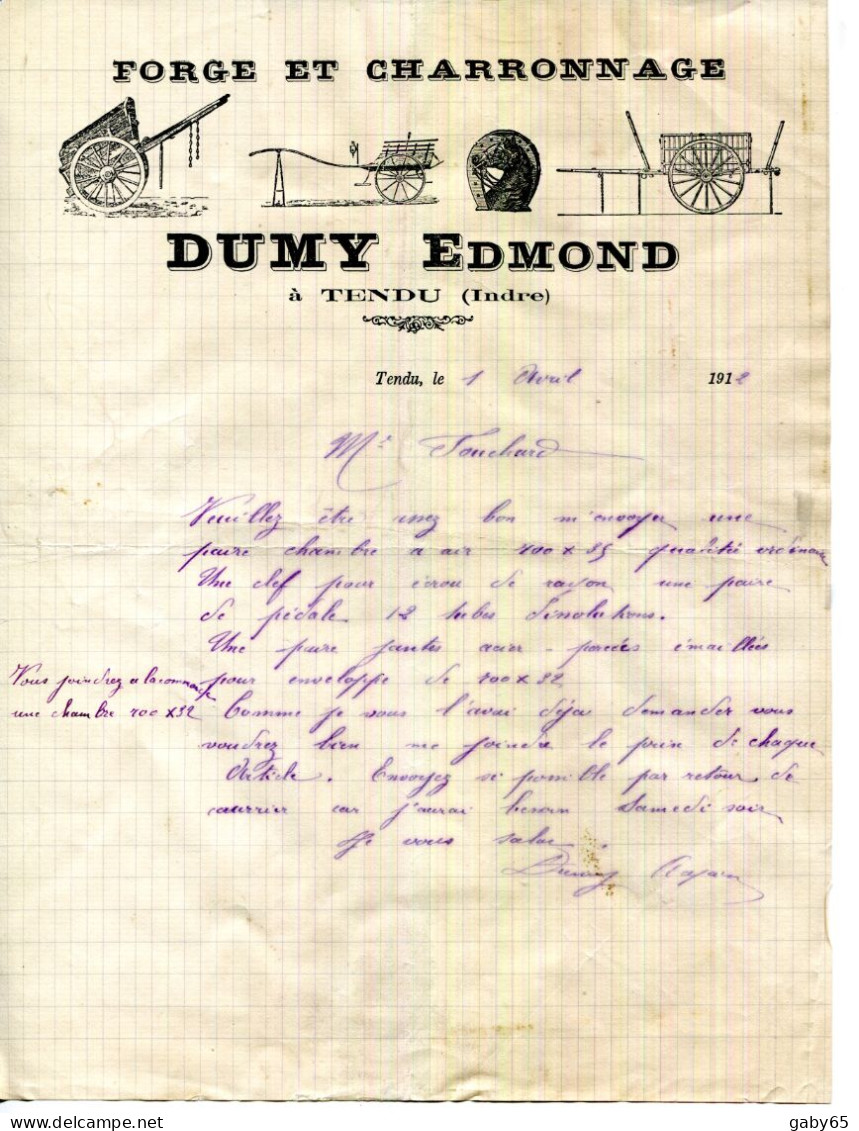 FORGE ET CHARRONNAGE
DUMY EDMOND
à TENDU (Indre)
Tendu, le 1 Avril 1912
Mr Touchard
Veuillez être assez bon m'envoyer une
paire chambre a air 700 x 35 qualité
Une clef pour écrou de rayon une paire
de pédale 12 tubes dissolutions.
Une paire jantes acier - percées émaillées
pour enveloppe de 700 x 32
Vous joindrez a la commande
une chambre 700 x 32
Comme je vous l'avai déja demander vous
voudrez bien me joindre le prix de chaque
Article. Envoyez si possible par retour de
courrier car j'aurai besoin Samedi soir
Je vous salue.
Dumy
gaby65